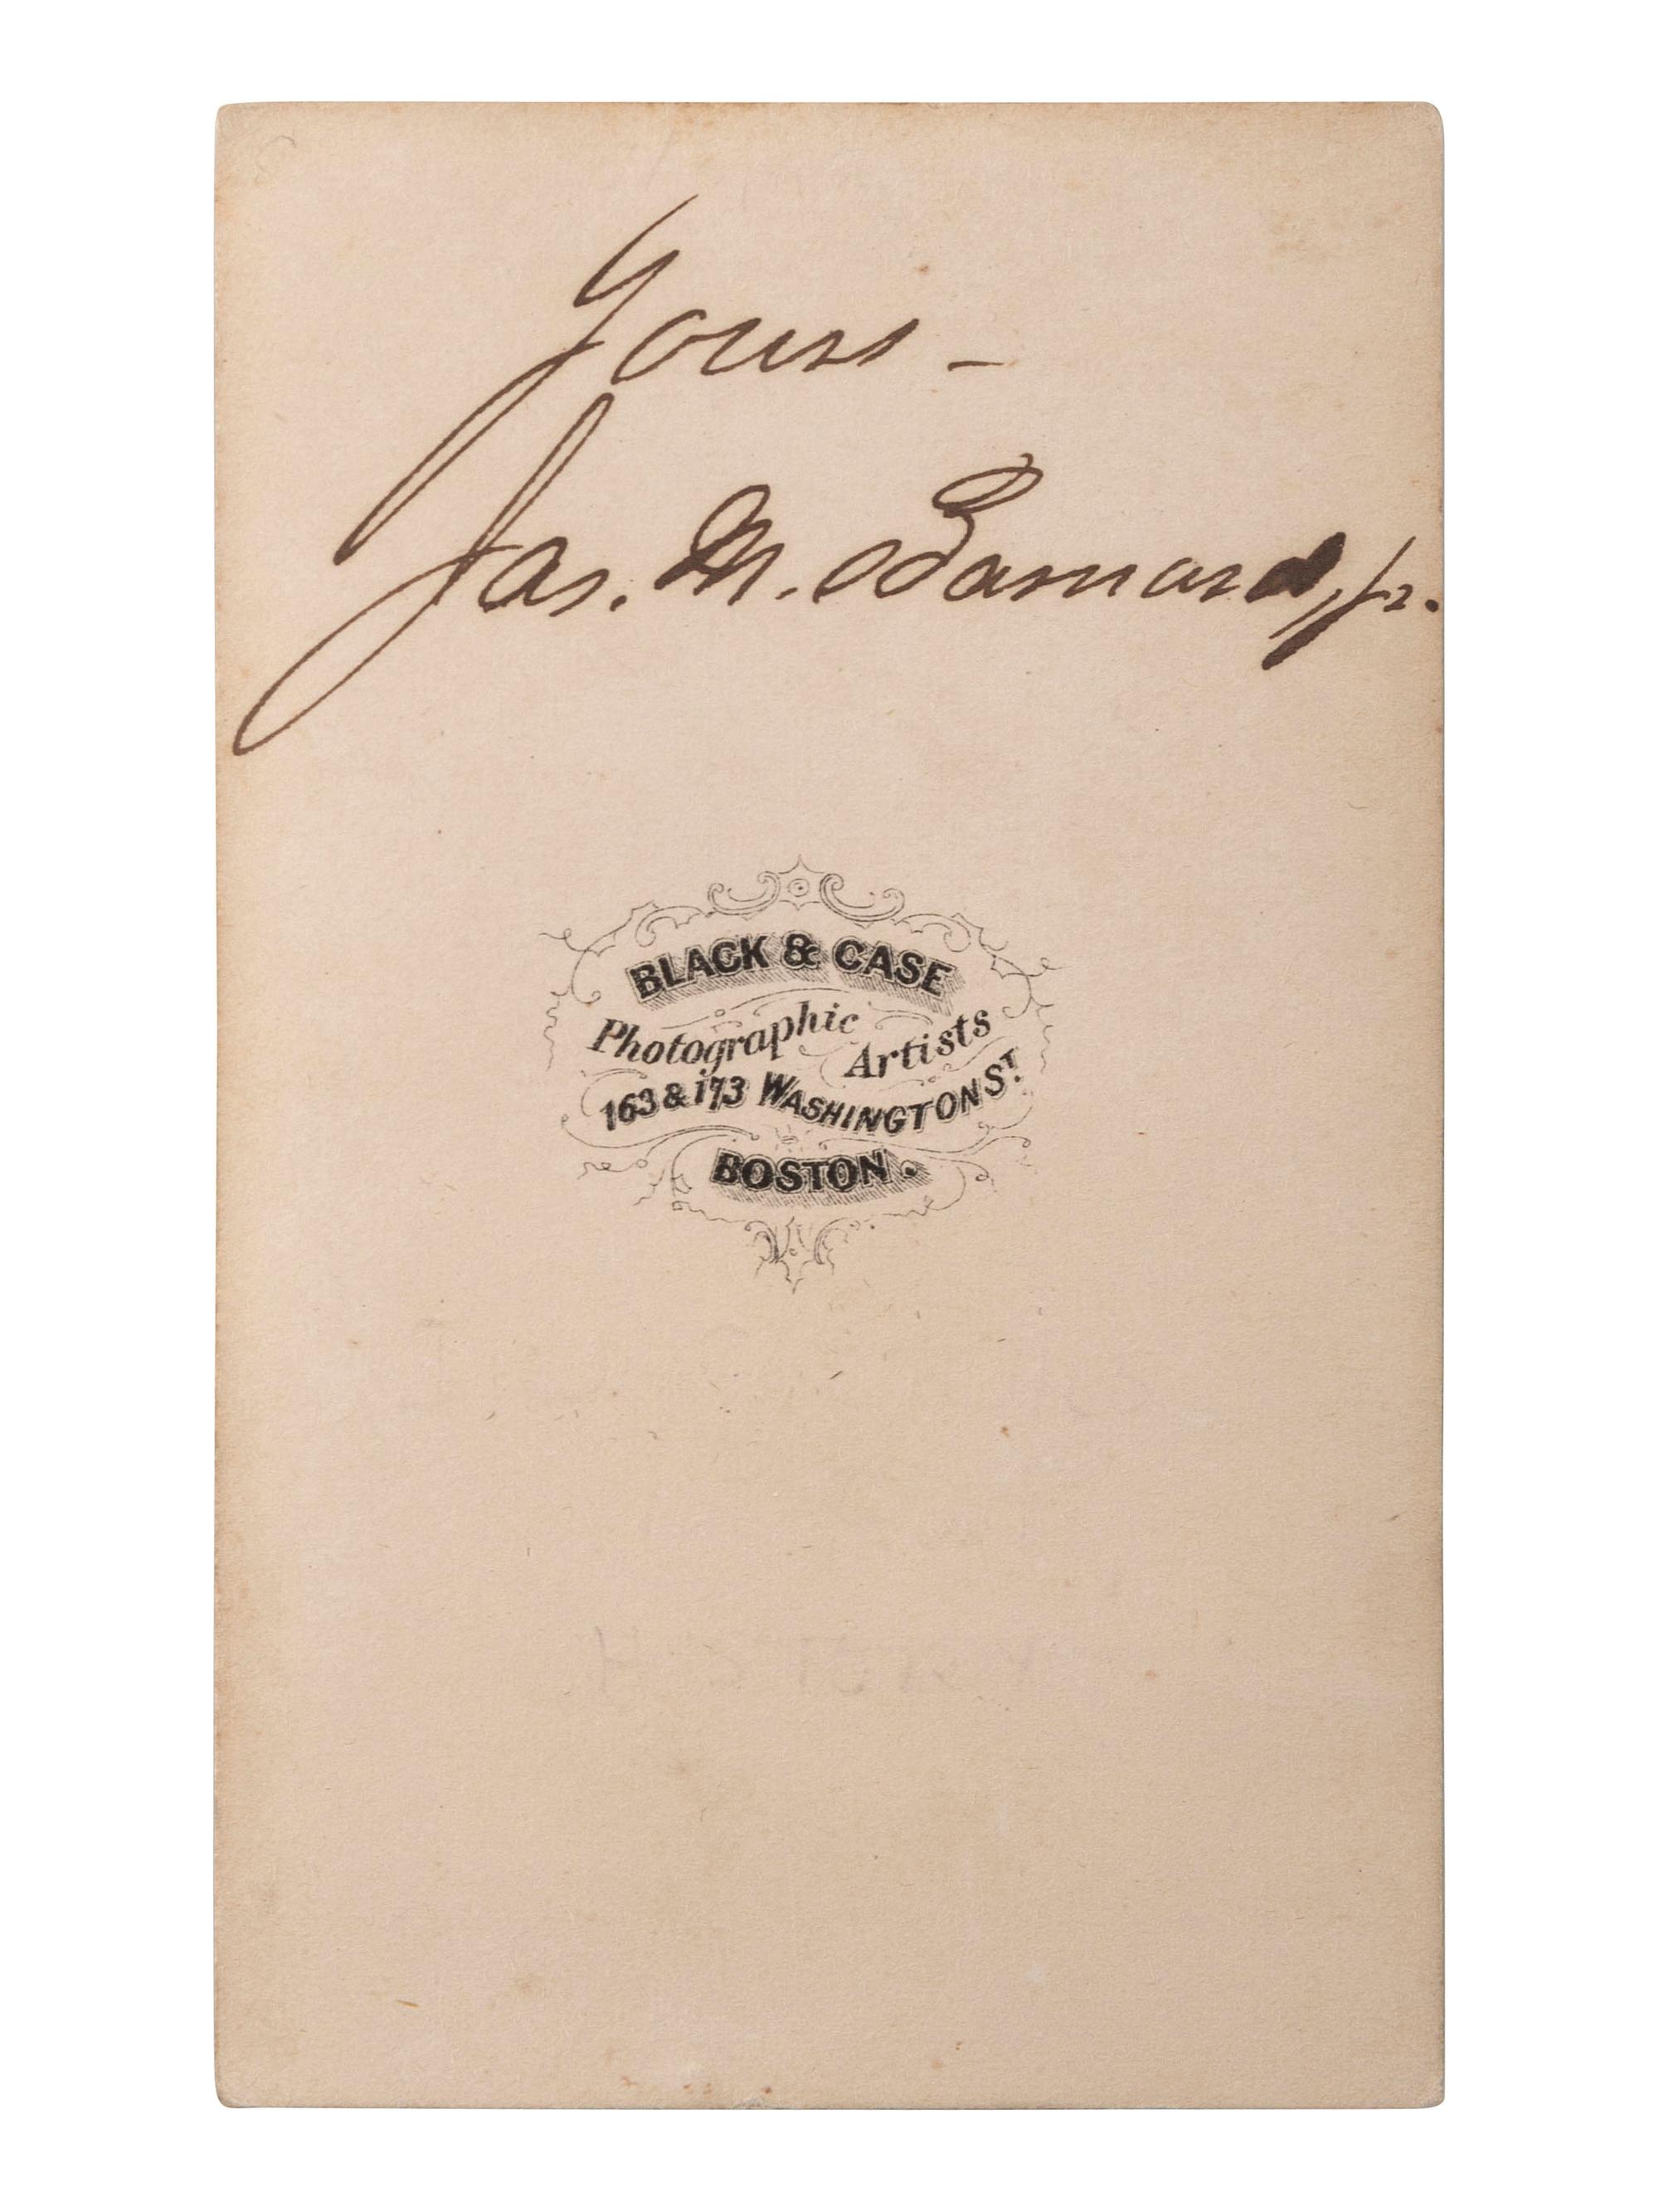 Yours -
Jas. M. Barnard, Jr.
BLACK & CASE
Photographic Artists
163 & 173 WASHINGTON ST.
BOSTON.